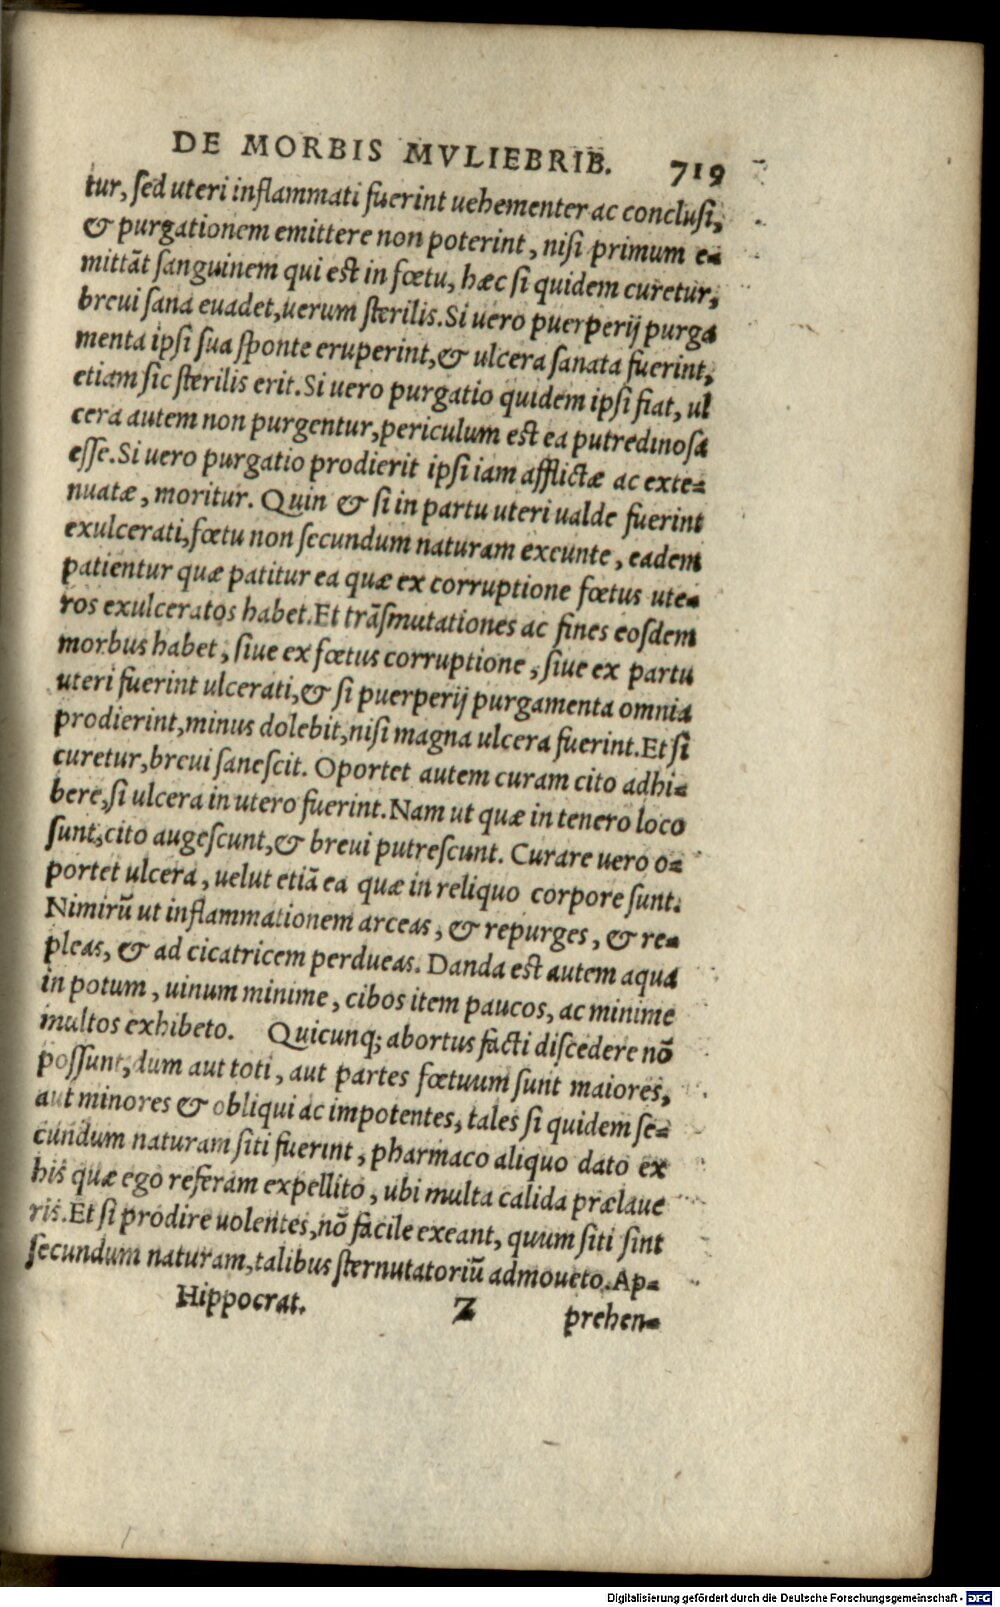 DE MORBIS MVLIEBRIB. 719
tur, sed uteri inflammati fuerint uehementer ac conclusi,
& purgationem emittere non poterint, nisi primum e-
mittãt sanguinem qui est in fœtu, hæc si quidem curetur,
breui sana euadet, uerum sterilis. Si uero puerperij purga
menta ipsi sua sponte eruperint, & ulcera sanata fuerint,
etiam sic sterilis erit. Si uero purgatio quidem ipsi fiat, ul
cera autem non purgentur, periculum est ea putredinosa
esse. Si uero purgatio prodierit ipsi iam afflictæ ac exte-
nuatæ, moritur. Quin & si in partu uteri ualde fuerint
exulcerati, fœtu non secundum naturam exeunte, eadem
patientur quæ patitur ea quæ ex corruptione fœtus ute-
ros exulceratos habet. Et trãsmutationes ac fines eosdem
morbus habet, siue ex fœtus corruptione, siue ex partu
uteri fuerint ulcerati, & si puerperij purgamenta omnia
prodierint, minus dolebit, nisi magna ulcera fuerint. Et si
curetur, breui sanescit. Oportet autem curam cito adhi-
bere, si ulcera in utero fuerint. Nam ut quæ in tenero loco
sunt, cito augescunt, & breui putrescunt. Curare uero o-
portet ulcera, uelut etiã ea quæ in reliquo corpore sunt.
Nimirũ ut inflammationem arceas, & repurges, & re-
pleas, & ad cicatricem perducas. Danda est autem aqua
in potum, uinum minime, cibos item paucos, ac minime
multos exhibeto. Quicunq; abortus facti discedere nõ
possunt, dum aut toti, aut partes fœtuum sunt maiores,
aut minores & obliqui ac impotentes, tales si quidem se-
cundum naturam siti fuerint, pharmaco aliquo dato ex
his quæ ego referam expellito, ubi multa calida prælaue
ris. Et si prodire uolentes, nõ facile exeant, quum siti sint
secundum naturam, talibus sternutatoriũ admoueto. Ap-
Hippocrat. Z prehen-
Digitalisierung gefördert durch die Deutsche Forschungsgemeinschaft - DFG